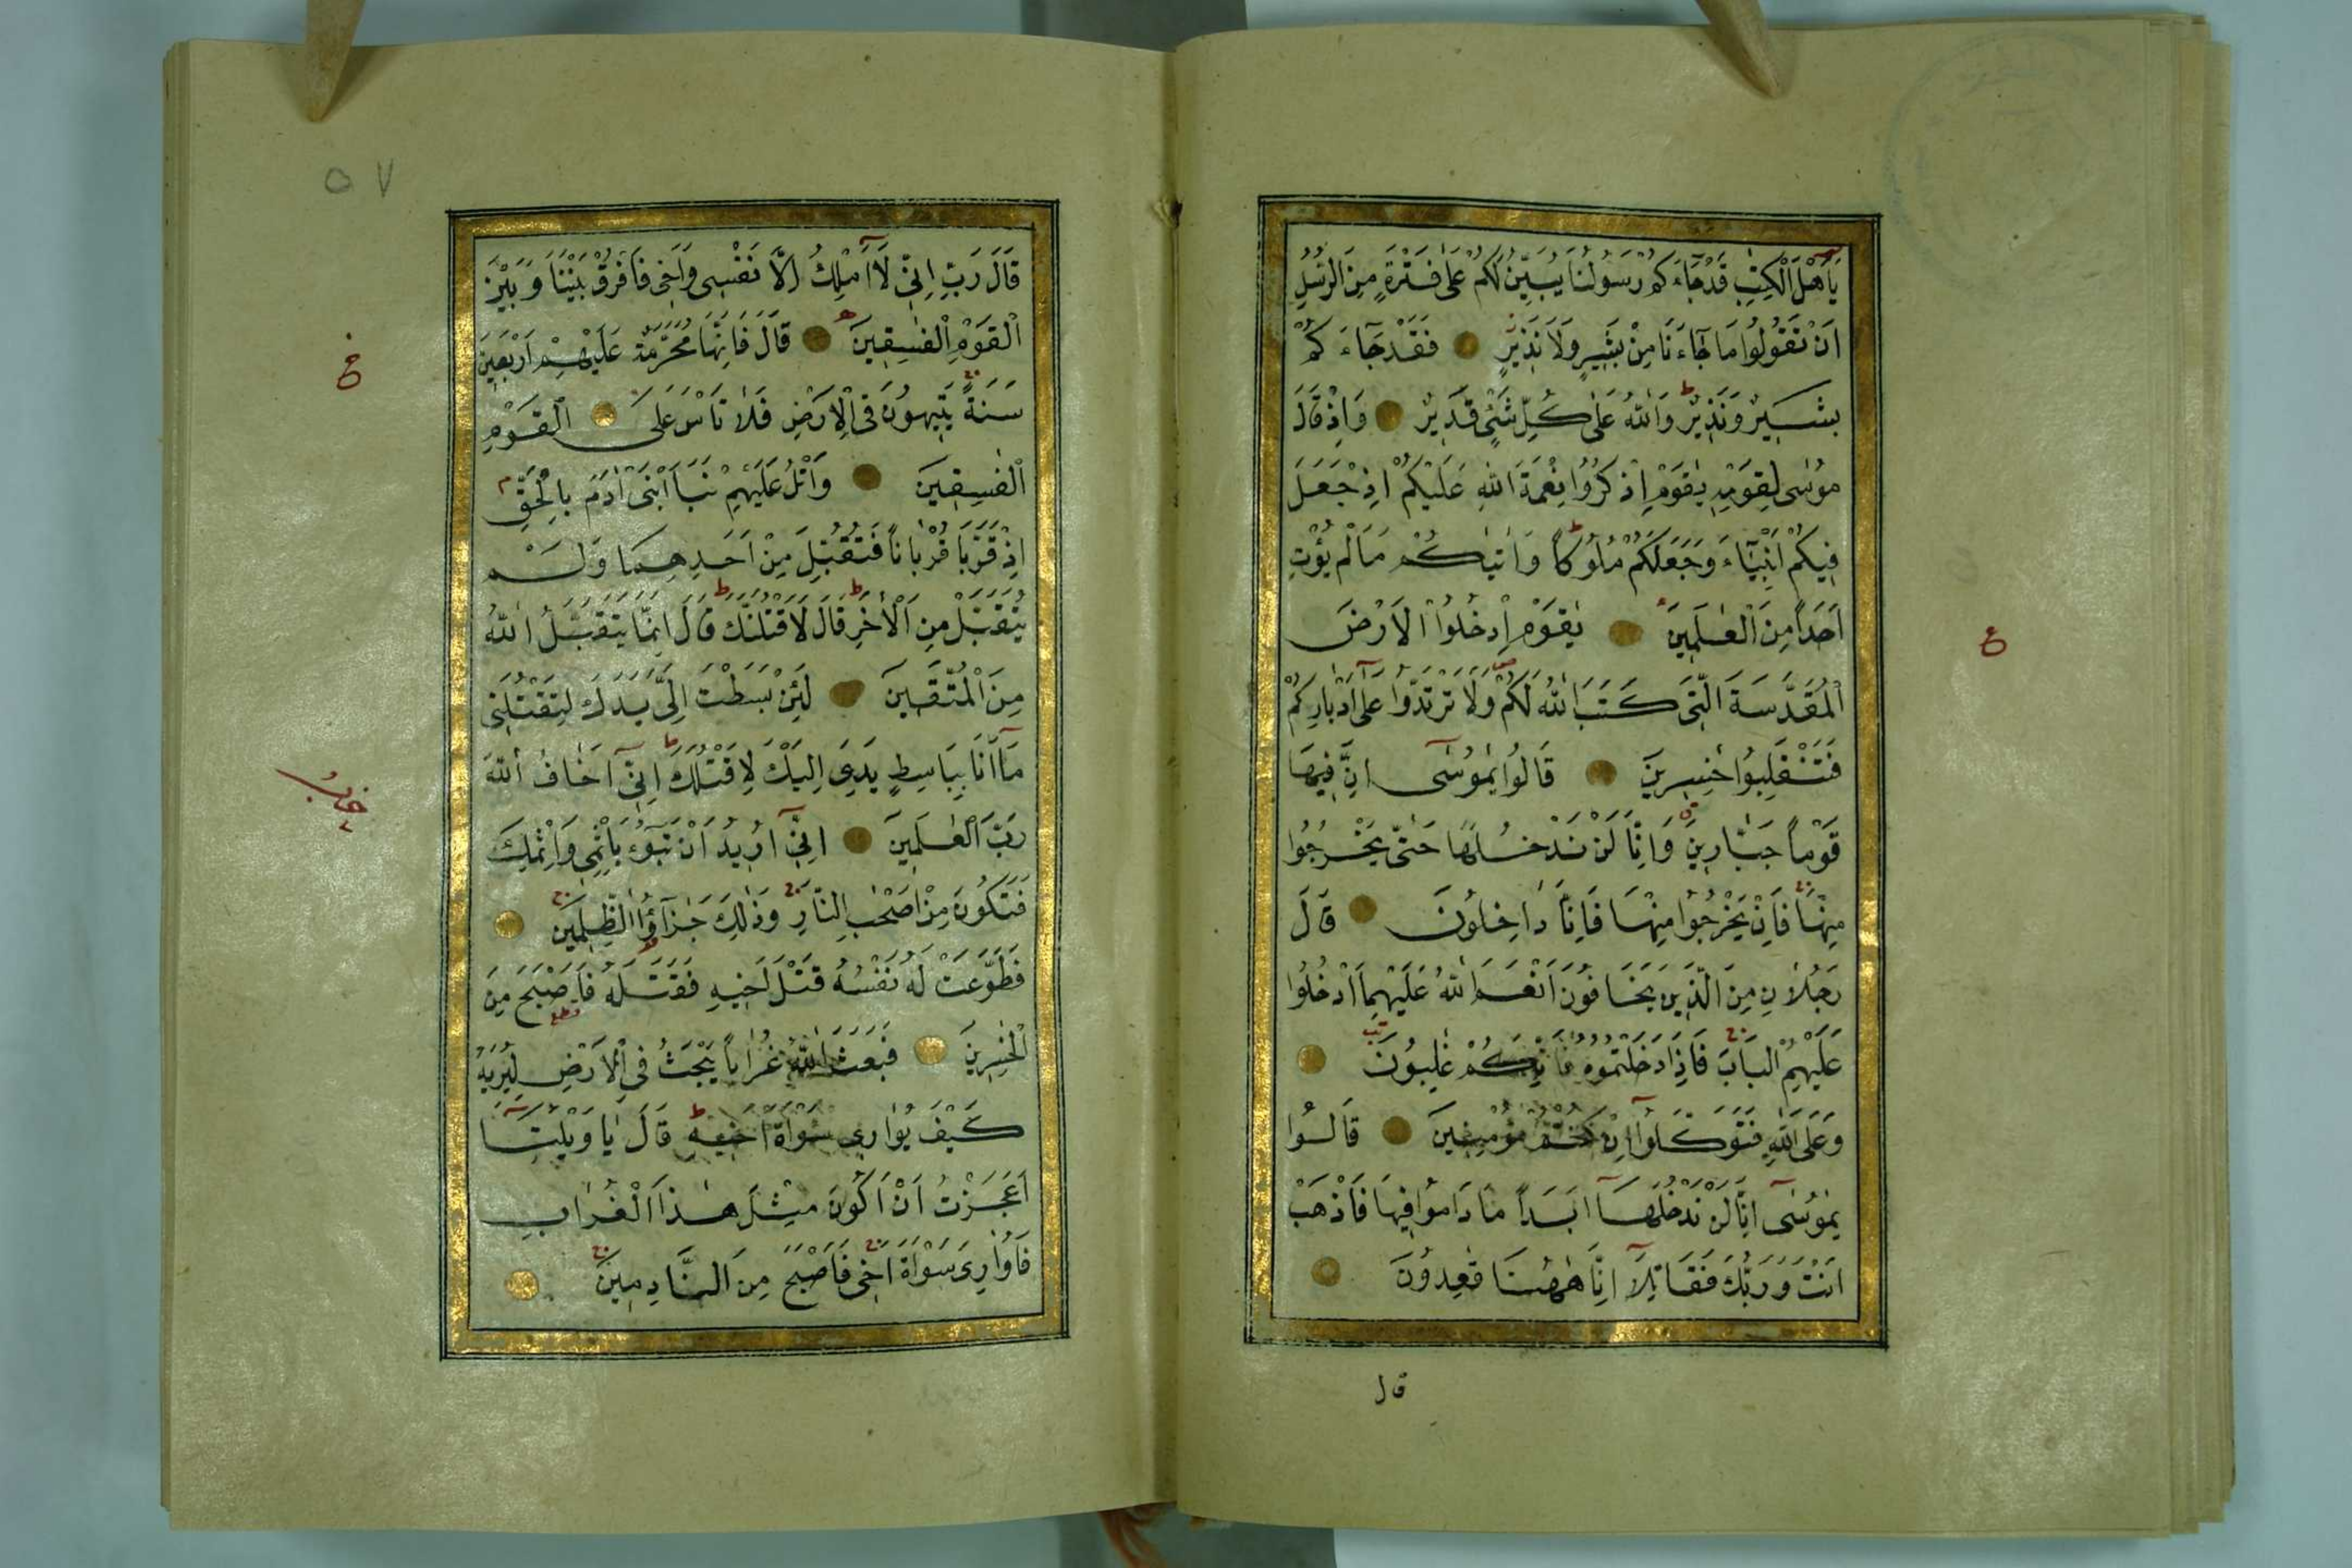 يَا أَهْلَ الْكِتٰبِ قَدْ جَاءَكُمْ رَسُولُنَا يُبَيِّنُ لَكُمْ عَلٰى فَتْرَةٍ مِنَ الرُّسُلِ
اَنْ تَقُولُوا مَا جَاءَنَا مِنْ بَشِيرٍ وَلَا نَذِيرٍ فَقَدْ جَاءَكُمْ
بَشِيرٌ وَنَذِيرٌ وَاللّٰهُ عَلٰى كُلِّ شَيْءٍ قَدِيرٌ وَاِذْ قَالَ
مُوسٰى لِقَوْمِهِ يٰقَوْمِ اذْكُرُوا نِعْمَةَ اللّٰهِ عَلَيْكُمْ اِذْ جَعَلَ
فِيكُمْ اَنْبِيَاءَ وَجَعَلَكُمْ مُلُوكًا وَاٰتٰيكُمْ مَا لَمْ يُؤْتِ
اَحَدًا مِنَ الْعٰلَمِينَ يٰقَوْمِ ادْخُلُوا الْاَرْضَ
الْمُقَدَّسَةَ الَّتِى كَتَبَ اللّٰهُ لَكُمْ وَلَا تَرْتَدُّوا عَلٰى اَدْبَارِكُمْ
فَتَنْقَلِبُوا خٰسِرِينَ قَالُوا يٰمُوسٰى اِنَّ فِيهَا
قَوْمًا جَبَّارِينَ وَاِنَّا لَنْ نَدْخُلَهَا حَتّٰى يَخْرُجُوا
مِنْهَا فَاِنْ يَخْرُجُوا مِنْهَا فَاِنَّا دَاخِلُونَ قَالَ
رَجُلَانِ مِنَ الَّذِينَ يَخَافُونَ اَنْعَمَ اللّٰهُ عَلَيْهِمَا ادْخُلُوا
عَلَيْهِمُ الْبَابَ فَاِذَا دَخَلْتُمُوهُ فَاِنَّكُمْ غٰلِبُونَ
وَعَلَى اللّٰهِ فَتَوَكَّلُوا اِنْ كُنْتُمْ مُؤْمِنِينَ قَالُوا
يٰمُوسٰى اِنَّا لَنْ نَدْخُلَهَا اَبَدًا مَا دَامُوا فِيهَا فَاذْهَبْ
اَنْتَ وَرَبُّكَ فَقَاتِلَا اِنَّا هٰهُنَا قٰعِدُونَ
قال
ع
٥٧
قَالَ رَبِّ اِنِّى لَا اَمْلِكُ اِلَّا نَفْسِى وَاَخِى فَافْرُقْ بَيْنَنَا وَبَيْنَ
الْقَوْمِ الْفٰسِقِينَ قَالَ فَاِنَّهَا مُحَرَّمَةٌ عَلَيْهِمْ اَرْبَعِينَ
سَنَةً يَتِيهُونَ فِى الْاَرْضِ فَلَا تَأْسَ عَلَى الْقَوْمِ
الْفٰسِقِينَ وَاتْلُ عَلَيْهِمْ نَبَاَ ابْنَىْ اٰدَمَ بِالْحَقِّ
اِذْ قَرَّبَا قُرْبَانًا فَتُقُبِّلَ مِنْ اَحَدِهِمَا وَلَمْ
يُتَقَبَّلْ مِنَ الْاٰخَرِ قَالَ لَاَقْتُلَنَّكَ قَالَ اِنَّمَا يَتَقَبَّلُ اللّٰهُ
مِنَ الْمُتَّقِينَ لَئِنْ بَسَطْتَ اِلَىَّ يَدَكَ لِتَقْتُلَنِى
مَا اَنَا بِبَاسِطٍ يَدِىَ اِلَيْكَ لِاَقْتُلَكَ اِنِّى اَخَافُ اللّٰهَ
رَبَّ الْعٰلَمِينَ اِنِّى اُرِيدُ اَنْ تَبُوءَ بِاِثْمِى وَاِثْمِكَ
فَتَكُونَ مِنْ اَصْحٰبِ النَّارِ وَذٰلِكَ جَزَاؤُا الظّٰلِمِينَ
فَطَوَّعَتْ لَهُ نَفْسُهُ قَتْلَ اَخِيهِ فَقَتَلَهُ فَاَصْبَحَ مِنَ
الْخٰسِرِينَ فَبَعَثَ اللّٰهُ غُرَابًا يَبْحَثُ فِى الْاَرْضِ لِيُرِيَهُ
كَيْفَ يُوَارِى سَوْاَةَ اَخِيهِ قَالَ يَا وَيْلَتٰى
اَعَجَزْتُ اَنْ اَكُونَ مِثْلَ هٰذَا الْغُرَابِ
فَاُوَارِىَ سَوْاَةَ اَخِى فَاَصْبَحَ مِنَ النَّادِمِينَ